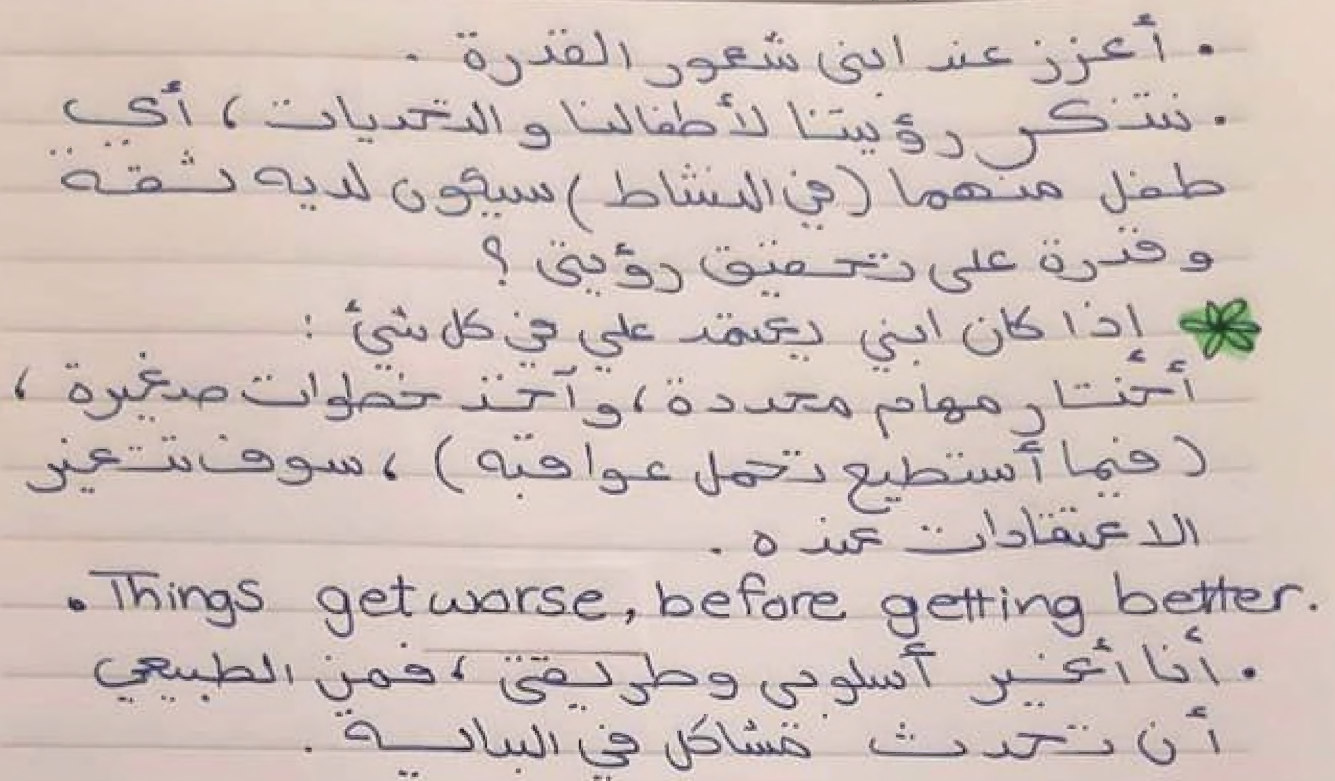 • أعزز عند ابني شعور القدرة .
• نتذكر رؤيتنا لأطفالنا والتحديات ، أي
طفل منهما (في النشاط) سيكون لديه ثقة
و قدرة على تحقيق رؤيتي ؟
إذا كان ابني يعتمد علي في كل شئ :
أختار مهام محددة ، وآخذ خطوات صغيرة ،
(فيما أستطيع تحمل عواقبه) ، سوف تتغير
الاعتقادات عنده .
• Things get worse, before getting better.
• أنا أغير أسلوبي وطريقتي ، فمن الطبيعي
أن تحدث مشاكل في البداية .